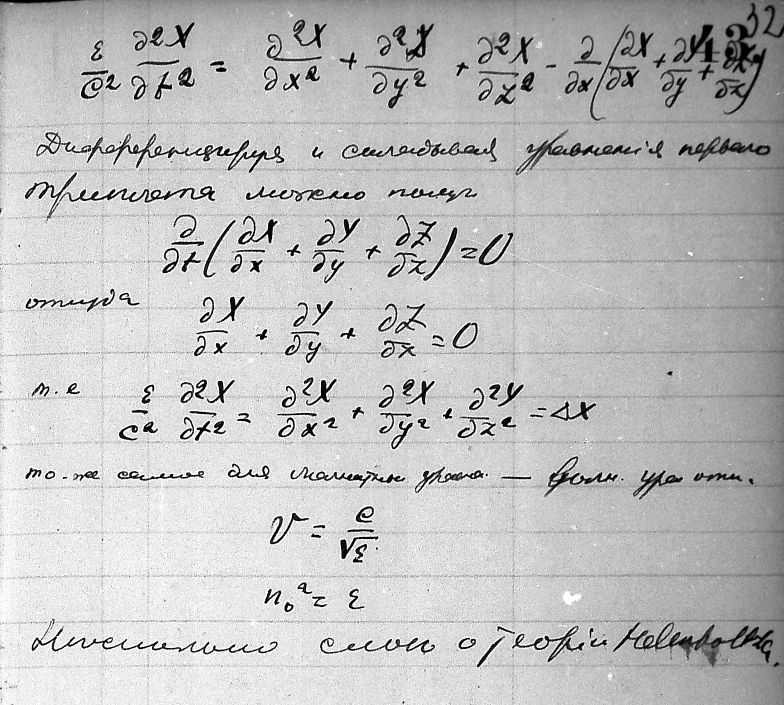 32
43
ε/c² ∂²X/∂t² = ∂²X/∂x² + ∂²X/∂y² + ∂²X/∂z² - ∂/∂x (∂X/∂x + ∂Y/∂y + ∂Z/∂z)
Дифференцируя и складывая уравнения первого
триплета можно получ
∂/∂t (∂X/∂x + ∂Y/∂y + ∂Z/∂z) = 0
откуда ∂X/∂x + ∂Y/∂y + ∂Z/∂z = 0
т.е ε/c² ∂²X/∂t² = ∂²X/∂x² + ∂²X/∂y² + ∂²X/∂z² = ΔX
то-же самое для магнитн уравн. —
V = c/√ε
n₀² = ε
Несколько слов о теорiи Helmholtza.